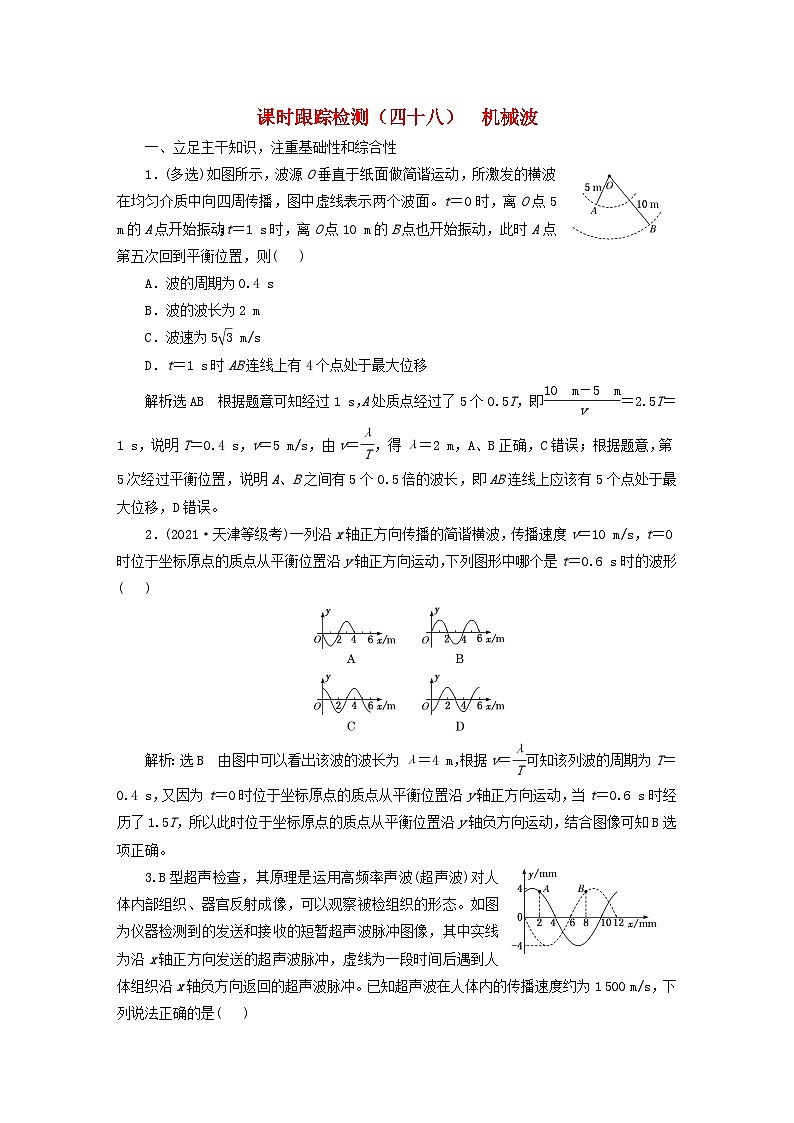 课时跟踪检测（四十八）　机械波
一、立足主干知识，注重基础性和综合性
1．(多选)如图所示，波源O垂直于纸面做简谐运动，所激发的横波
在均匀介质中向四周传播，图中虚线表示两个波面。t＝0时，离O点5
m的A点开始振动；t＝1 s时，离O点10 m的B点也开始振动，此时A点
第五次回到平衡位置，则(　　)
5 m
O
A
10 m
B
A．波的周期为0.4 s
B．波的波长为2 m
C．波速为5√3 m/s
D．t＝1 s时AB连线上有4个点处于最大位移
解析：选AB　根据题意可知经过1 s，A处质点经过了5个0.5T，即(10 m－5 m)/v＝2.5T＝
1 s，说明T＝0.4 s，v＝5 m/s，由v＝λ/T，得 λ＝2 m，A、B正确，C错误；根据题意，第
5次经过平衡位置，说明A、B之间有5个0.5倍的波长，即AB连线上应该有5个点处于最
大位移，D错误。
2．(2021·天津等级考)一列沿x轴正方向传播的简谐横波，传播速度v＝10 m/s，t＝0
时位于坐标原点的质点从平衡位置沿y轴正方向运动，下列图形中哪个是t＝0.6 s时的波形
(　　)
y
O 2 4 6 x/m
A
y
O 2 4 6 x/m
B
y
O 2 4 6 x/m
C
y
O 2 4 6 x/m
D
解析：选B　由图中可以看出该波的波长为 λ＝4 m，根据v＝λ/T可知该列波的周期为T＝
0.4 s，又因为t＝0时位于坐标原点的质点从平衡位置沿y轴正方向运动，当t＝0.6 s时经
历了1.5T，所以此时位于坐标原点的质点从平衡位置沿y轴负方向运动，结合图像可知B选
项正确。
3.B型超声检查，其原理是运用高频率声波(超声波)对人
体内部组织、器官反射成像，可以观察被检组织的形态。如图
为仪器检测到的发送和接收的短暂超声波脉冲图像，其中实线
为沿x轴正方向发送的超声波脉冲，虚线为一段时间后遇到人
体组织沿x轴负方向返回的超声波脉冲。已知超声波在人体内的传播速度约为1 500 m/s，下
列说法正确的是(　　)
y/mm
4 A B
0 2 4 6 8 10 12 x/mm
－4